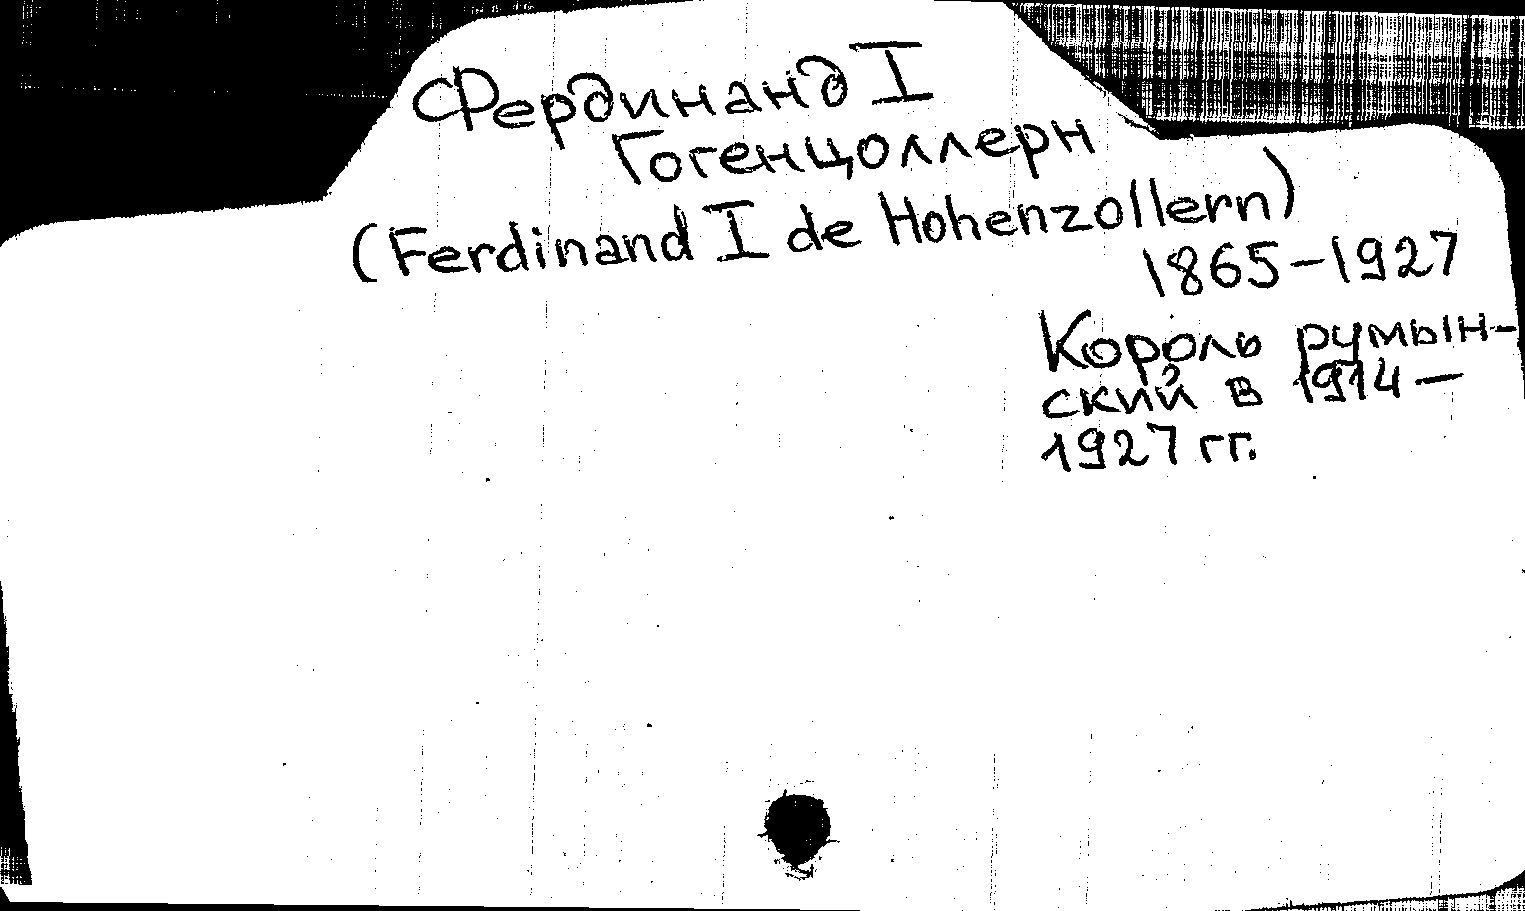 Фердинанд I
Гогенцоллерн
(Ferdinand I de Hohenzollern)
1865-1927
Король румын-
ский в 1914-
1927 гг.